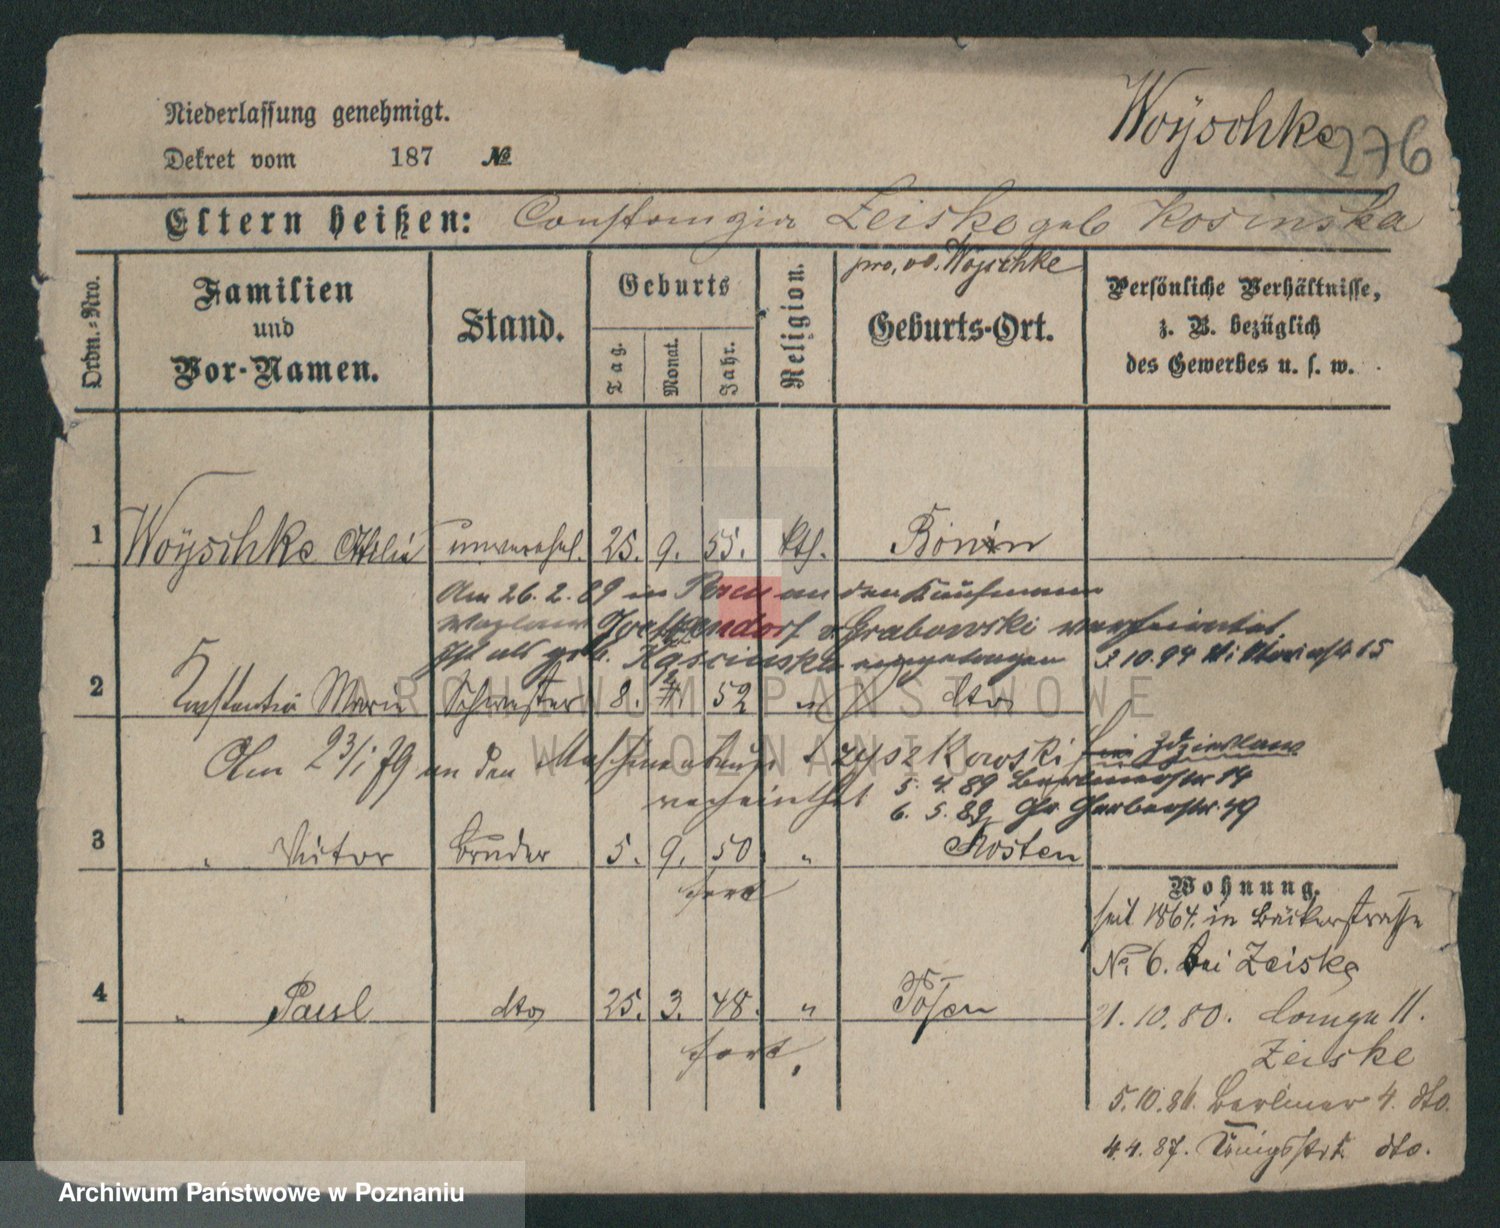 Niederlassung genehmigt.
Woÿschke 276
Dekret vom 187 №
Eltern heißen: Constanzia Zeiske geb Kosinska
pro, vo. Woÿschke
Ordn.-Nro.
Familien und Vor-Namen.
Stand.
Geburts
Tag. Monat. Jahr.
Religion.
Geburts-Ort.
Persönliche Verhältnisse,
z. B. bezüglich
des Gewerbes u. s. w.
1 Woÿschke Ottilie unverehel. 25. 9. 55. kth. Bonin
Am 26. 2. 89 in Posen an den Kaufmann
v Grabowski verheiratet
Ist als geb. eingetragen 3 10. 94 15
2 Konstantia Marie Schwester 8. 52 " dto
Am 23/1 79 an den Maschinenbauer verheirathet
5. 4. 89 Berlinerstr 14
6. 5. 89 Gr Gerberstr. 49
3 " Victor Bruder 5. 9. 50 " Kosten
fort
Wohnung.
seit 1864. in Bäckerstrasse
No 6. bei Zeiske
4 " Paul dto 25. 3. 48. " Posen
fort.
21. 10. 80. Lange 11.
Zeiske
5. 10. 86. Berliner 4. dto.
4. 4. 87. Königsstr dto.
ARCHIWUM PAŃSTWOWE
W POZNANIU
Archiwum Państwowe w Poznaniu